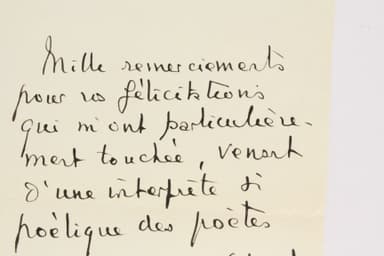 Mille remerciements
pour vos félicitations
qui m'ont particulière-
ment touchée, venant
d'une interprète si
poëtique des poètes